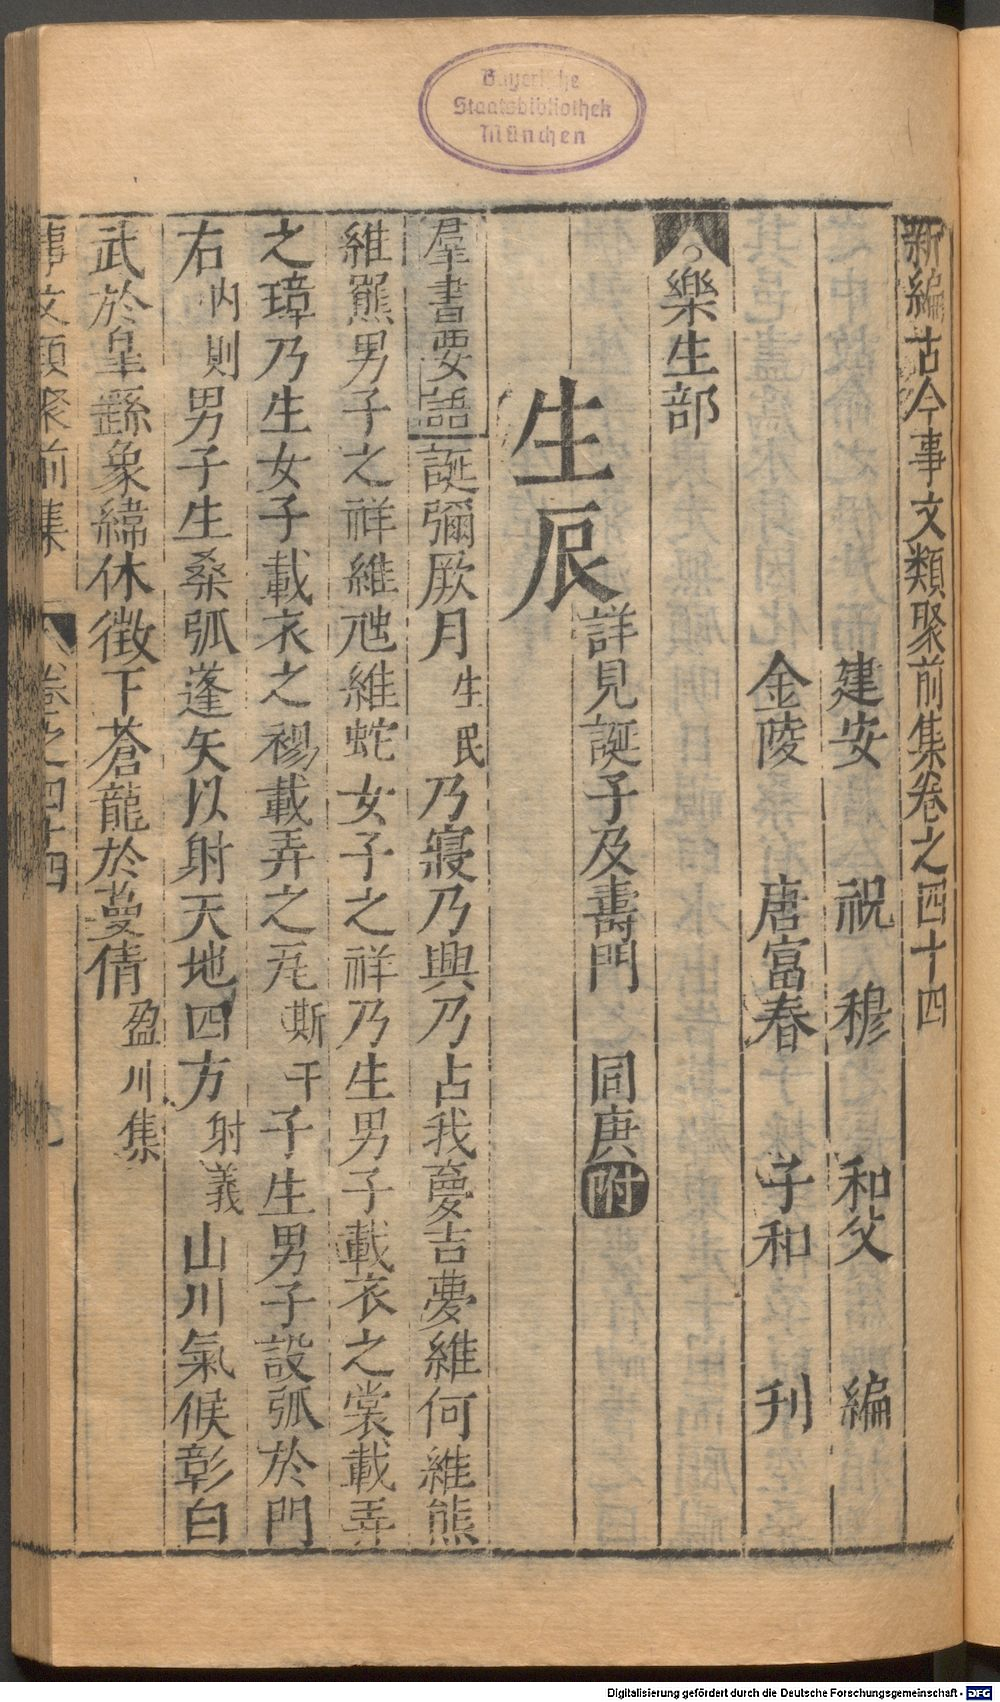 Bayerische
Staatsbibliothek
München
新編古今事文類聚前集卷之四十四
建安 祝 穆 和父 編
金陵 唐富春 子和 刋
○樂生部
生辰
詳見誕子及壽門 同庚附
羣書要語誕彌厥月生民乃寢乃興乃占我夢吉夢維何維熊
維羆男子之祥維虺維蛇女子之祥乃生男子載衣之裳載弄
之璋乃生女子載衣之裼載弄之瓦斯干子生男子設弧於門
右内則男子生桑弧蓬矢以射天地四方射義山川氣候彰白
武於皐繇象緯休徴下蒼龍於蔓倩盈川集
事文類聚前集 卷之四十四
Digitalisierung gefördert durch die Deutsche Forschungsgemeinschaft - DFG